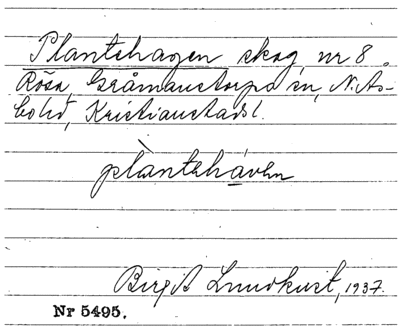 Plantehagen skog nr 8
Röså, Gråmanstorps sn, N. Ås-
bo hd, Kristianstads l.
plàntehávẹn
Birgit Lundkvist, 1937.
Nr 5495.